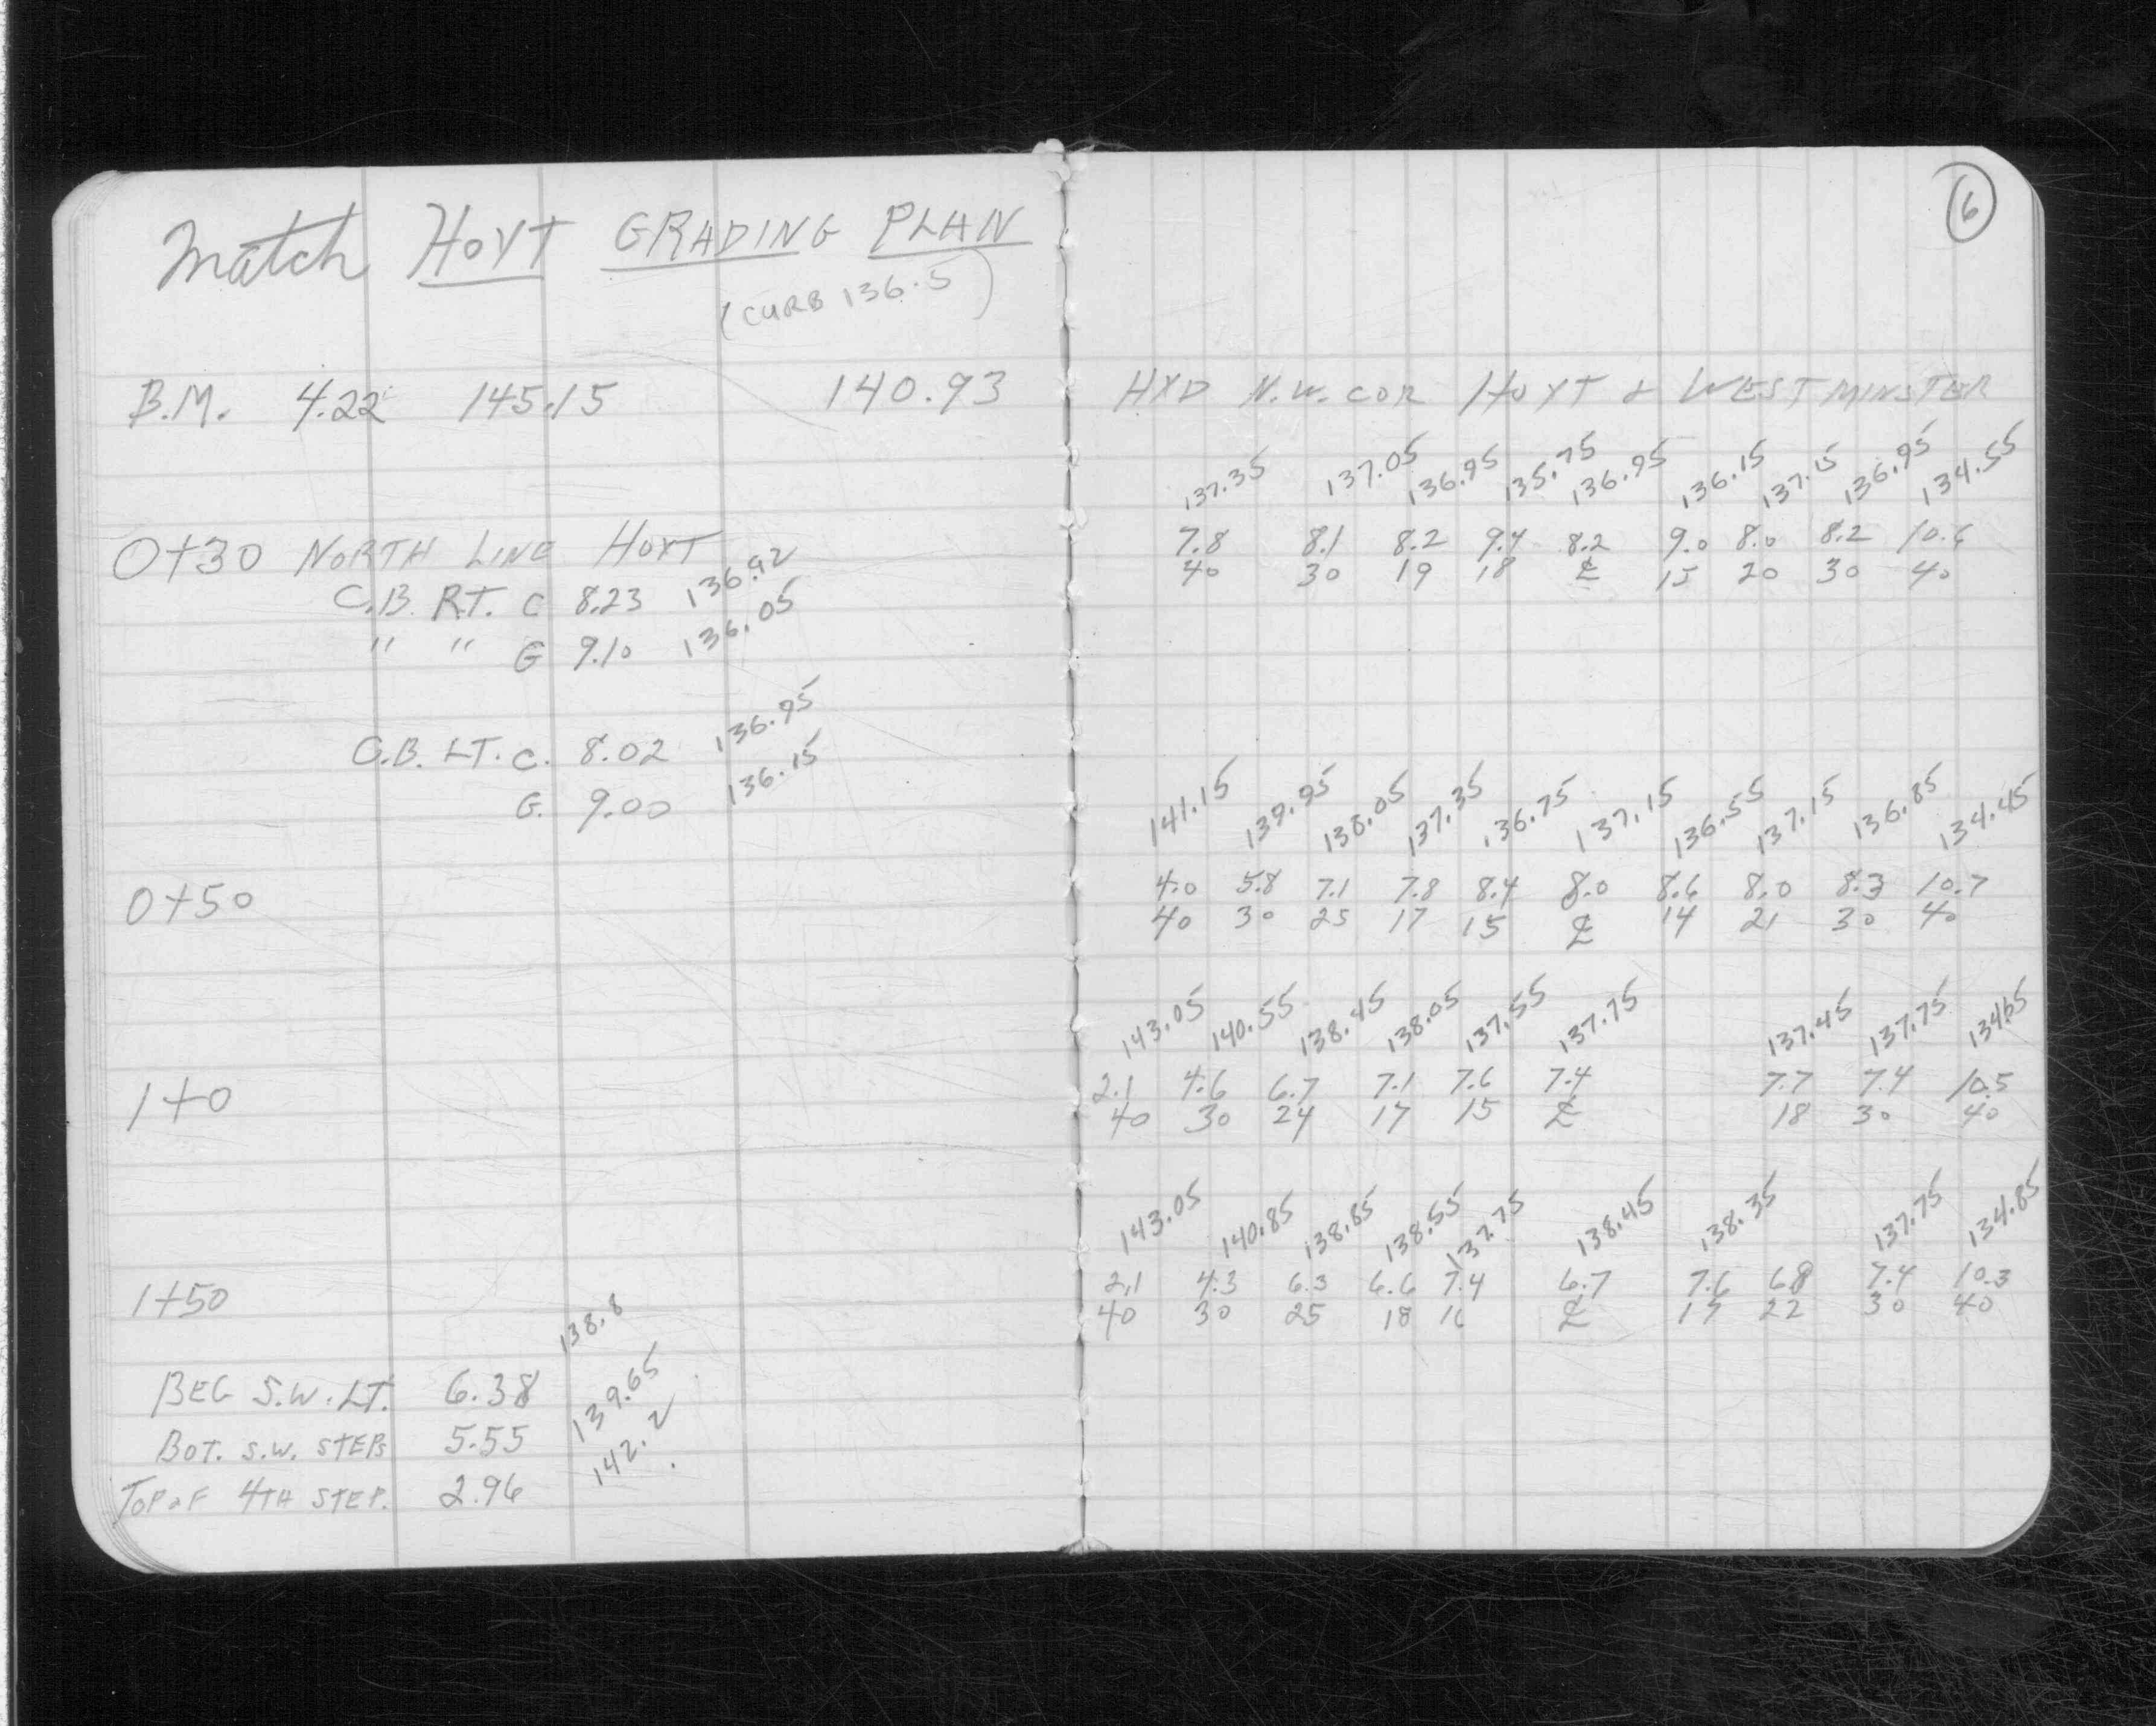 6
Match HOYT GRADING PLAN
(CURB 136.5)
B.M. 4.22 145.15 140.93 HYD N.W. COR HOYT & WESTMINSTER
137.35 137.05 136.95 135.75 136.95 136.15 137.15 136.95 134.55
0+30 NORTH LINE HOYT 7.8 8.1 8.2 9.4 8.2 9.0 8.0 8.2 10.6
40 30 19 18 ℄ 15 20 30 40
C.B. RT. C 8.23 136.92
" " G 9.10 136.05
C.B. LT. C. 8.02 136.95
G. 9.00 136.15
141.15 139.95 138.05 137.35 136.75 137.15 136.55 137.15 136.85 134.45
0+50 4.0 5.8 7.1 7.8 8.4 8.0 8.6 8.0 8.3 10.7
40 30 25 17 15 ℄ 14 21 30 40
143.05 140.55 138.45 138.05 137.55 137.75 137.45 137.75 134.65
1+0 2.1 4.6 6.7 7.1 7.6 7.4 7.7 7.4 10.5
40 30 24 17 15 ℄ 18 30 40
143.05 140.85 138.85 138.55 137.75 138.45 138.35 137.75 134.85
1+50 2.1 4.3 6.3 6.6 7.4 6.7 7.6 6.8 7.4 10.3
40 30 25 18 16 ℄ 17 22 30 40
BEG S.W. LT. 6.38 138.8
BOT. S.W. STEPS 5.55 139.65
TOP OF 4TH STEP. 2.96 142.2